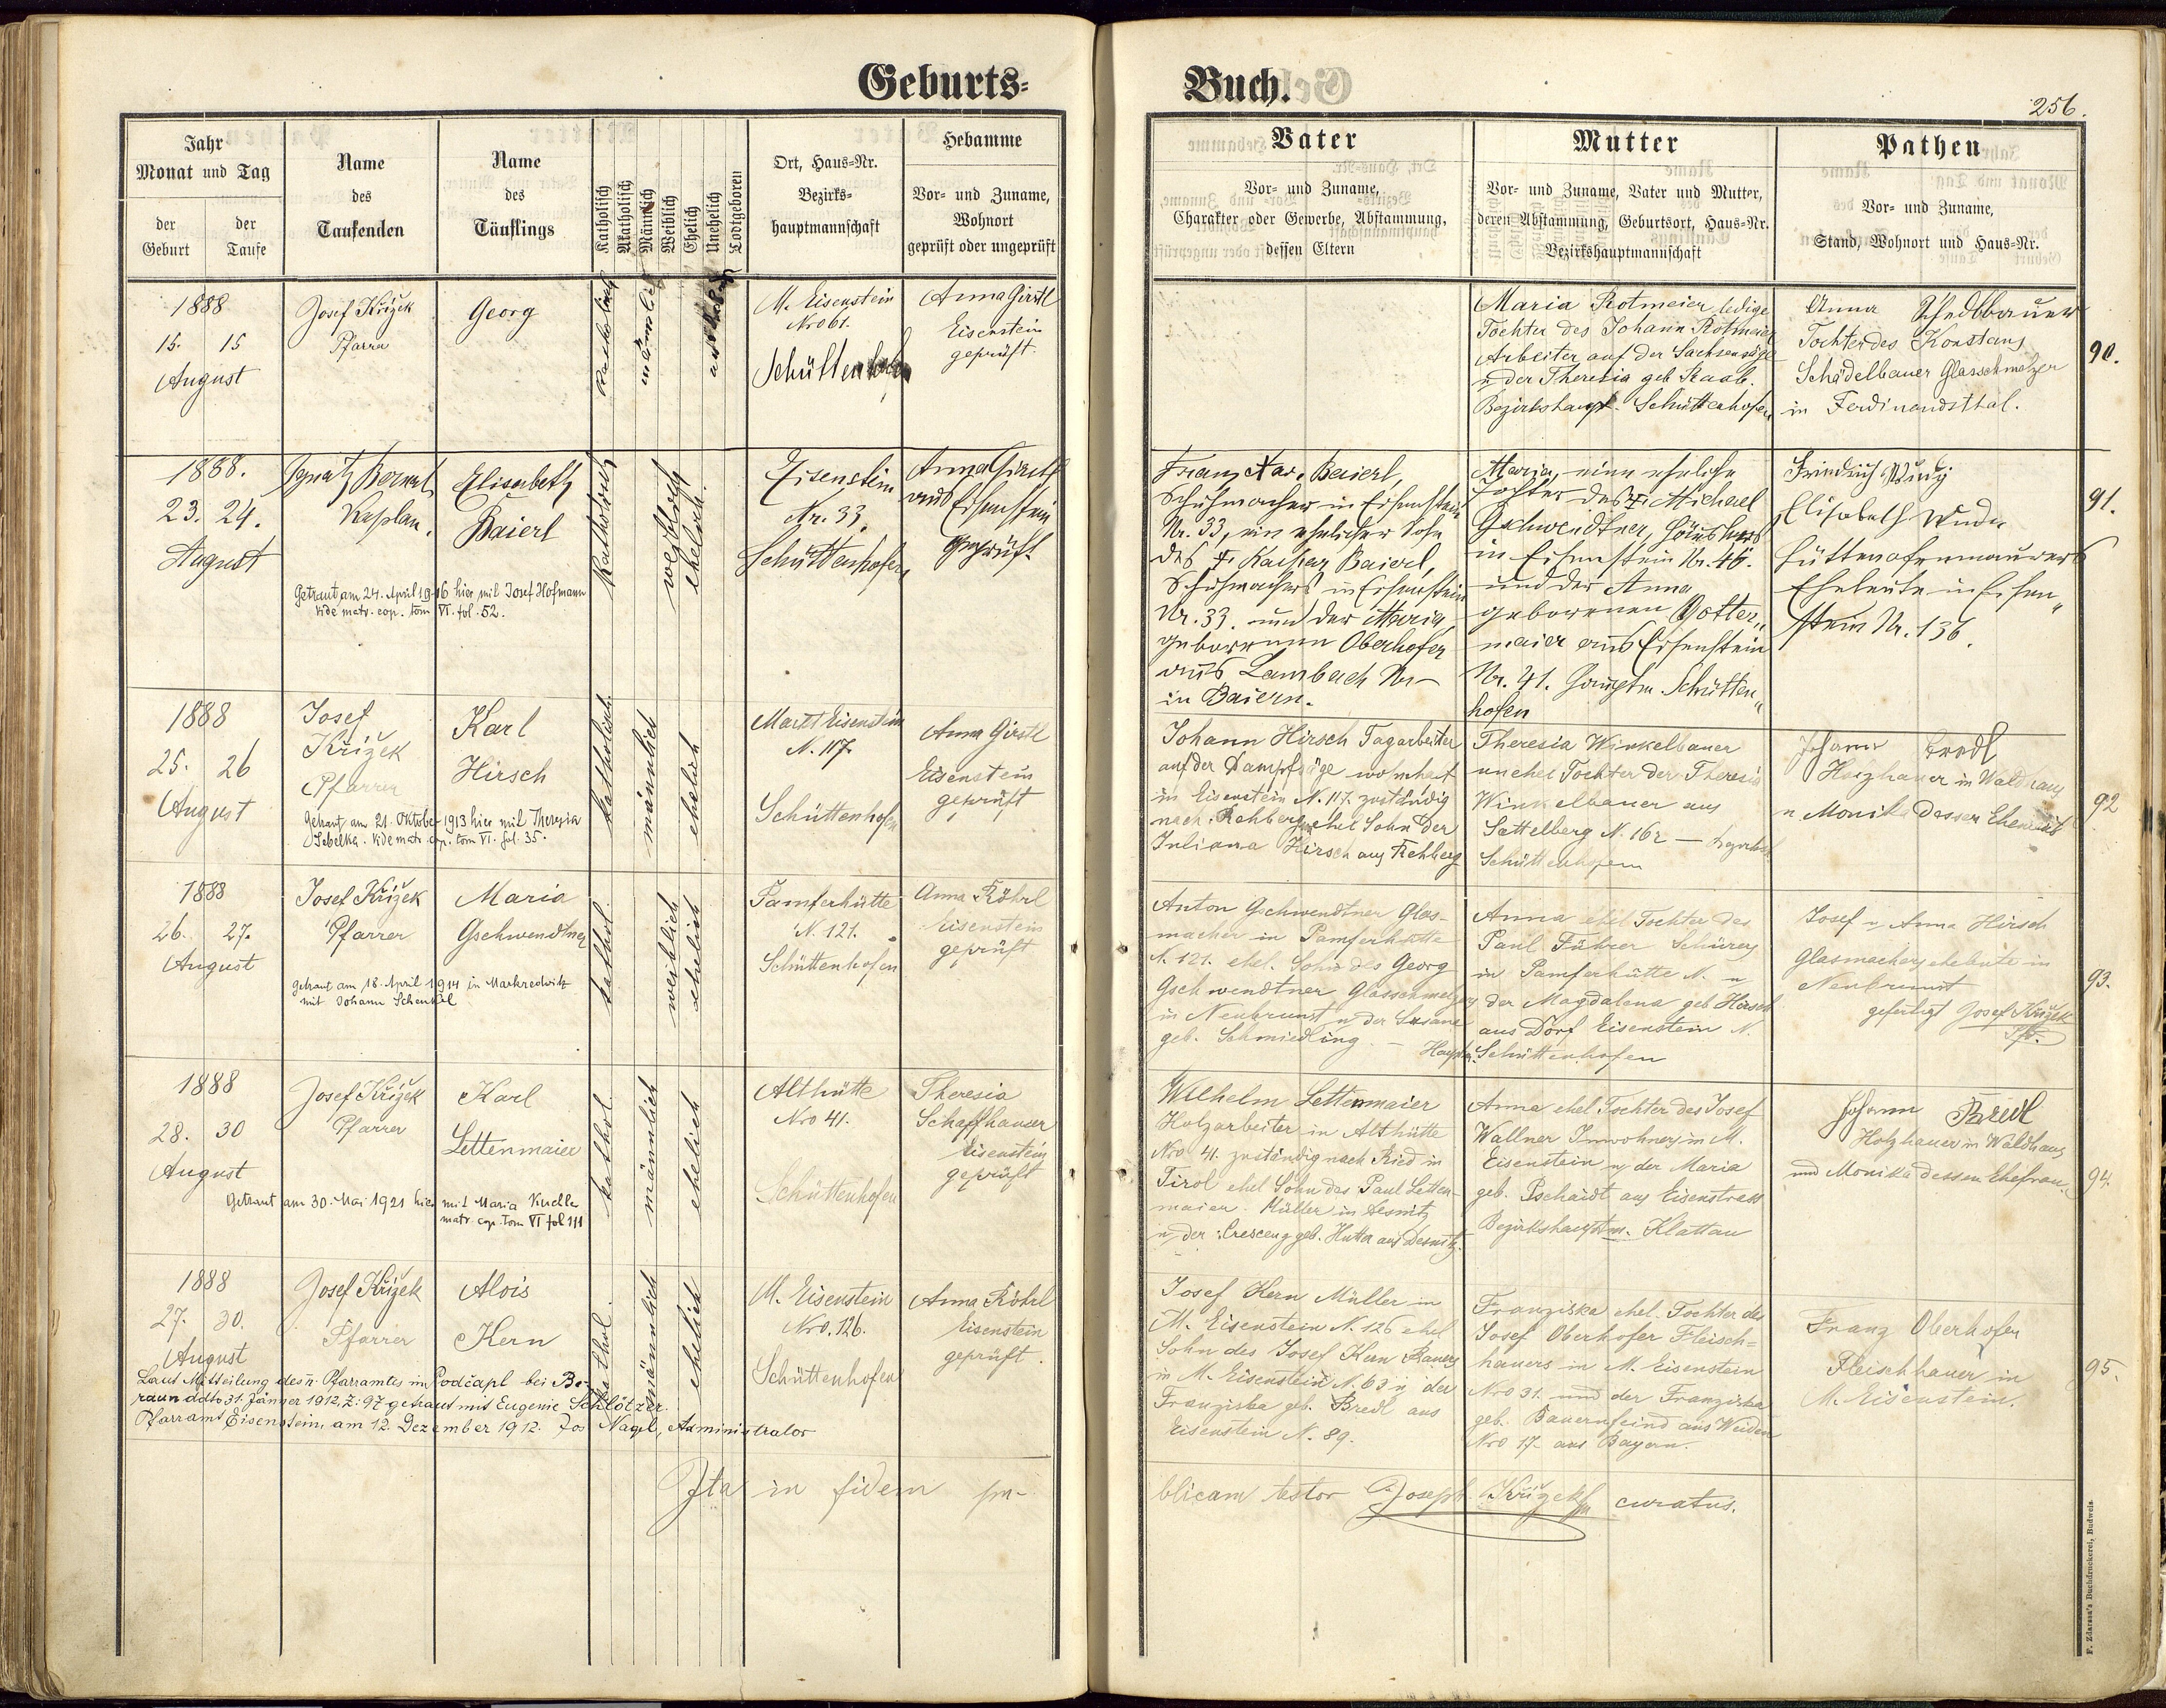 Geburts-
Buch.
256.
Jahr
Monat und Tag
der
Geburt
der
Taufe
Name
des
Taufenden
Name
des
Täuflings
Katholisch
Akatholisch
Männlich
Weiblich
Ehelich
Unehelich
Todtgeboren
Ort, Haus-Nr.
Bezirks-
hauptmannschaft
Hebamme
Vor- und Zuname,
Wohnort
geprüft oder ungeprüft
Vater
Vor- und Zuname,
Charakter oder Gewerbe, Abstammung,
dessen Eltern
Mutter
Vor- und Zuname, Vater und Mutter,
deren Abstammung, Geburtsort, Haus-Nr.
Bezirkshauptmannschaft
Pathen
Vor- und Zuname,
Stand, Wohnort und Haus-Nr.
1888
15. 15
August
Josef Křížek
Pfarrer
Georg
männlich
M. Eisenstein
Nro 61.
Schüttenhofen
Anna Girstl
Eisenstein
geprüft.
Maria Rotmeier ledige
Tochter des Johann Rotmeier
Arbeiter auf der Sachsensäge
u der Theresia geb Staab.
Bezirkshaupt. Schüttenhofen
Anna Schedlbauer
Tochter des Konstanz
Schädelbauer Glasschmelzer
in Ferdinandsthal.
90.
1888.
23. 24.
August
Ignatz Bernat
Kaplan.
Elisabeth
Baierl
Katholisch
weiblich
ehelich.
Eisenstein
Nr. 33.
Schüttenhofen
Anna Girstl
aus Eisenstein
geprüft
Getraut am 24. April 1916 hier mit Josef Hofmann
vide matr. cop. tom VI. fol. 52.
Franz Xav. Baierl,
Schuhmacher in Eisenstein
Nr. 33, ein ehelicher Sohn
des † Kaspar Baierl,
Schuhmachers in Eisenstein
Nr. 33. und der Maria,
geborenen Oberhofer
aus Lambach Nr –
in Baiern.
Maria, eine eheliche
Tochter des † Michael
Gschwendtner,
in Eisenstein Nr. 45.
und der Anna
geborenen Dotter„
maier aus Eisenstein
Nr. 41. Hauptm Schütten„
hofen
Friedrich
Elisabeth Wudy
Hüttenofenmaurers
Eheleute in Eisen„
stein Nr. 136.
91.
1888
25. 26
August
Josef
Křížek
Pfarrer
Karl
Hirsch
katholisch
männlich
ehelich
Markt Eisenstein
N. 117.
Schüttenhofen
Anna Girstl
Eisenstein
geprüft
Getraut am 21. Oktober 1913 hier mit Theresia
Sebelka. vide matr. cop. tom VI. fol. 35.
Johann Hirsch Tagarbeiter
auf der Dampfsäge wohnhaft
in Eisenstein N. 117. zuständig
nach Rehberg unehel Sohn der
Juliana Hirsch aus Rehberg
Theresia Winkelbauer
unehel Tochter der Theresia
Winkelbauer aus
Sattelberg N. 162 –
Schüttenhofen
Johann Bredl
Holzhauer in Waldhaus
u. Monika dessen Eheweib
92
1888
26. 27.
August
Josef Křížek
Pfarrer
Maria
Gschwendtner
kathol.
weiblich
ehelich
Pamferhütte
N. 121.
Schüttenhofen
Anna Röhrl
Eisenstein
geprüft
getraut am 18. April 1914 in Markredwitz
mit Johann Schenkel
Anton Gschwendtner Glas-
macher in Pamferhütte
N. 121. ehel. Sohn des Georg
Gschwendtner Glasschmelzer
in Neubrunst u der Susana
geb. Schmiedling – Hauptm.
Anna ehel Tochter des
Paul Führer Schürers
in Pamferhütte N. u
der Magdalena geb Hirsch
aus Dorf Eisenstein N.
Schüttenhofen
Josef u Anna Hirsch
Glasmachers eheleute in
Neubrunst
gefertigt Josef Křížek
Pfr.
93.
1888
28. 30
August
Josef Křížek
Pfarrer
Karl
Lettenmaier
kathol.
männlich
ehelich
Althütte
Nro 41.
Schüttenhofen
Theresia
Schaffhauser
Eisenstein
geprüft
Getraut am 30. Mai 1921 hier mit Maria Kuchler
matr. cop. Tom VI fol 111
Wilhelm Lettenmaier
Holzarbeiter in Althütte
Nro 41. zuständig nach Ried in
Tirol ehel Sohn des Paul Letten-
maier. Müller in
u. der Crescenz geb. Hutter aus
Anna ehel Tochter des Josef
Wallner Inwohners in M.
Eisenstein u der Maria
geb. Pschaidt aus Eisenstrass
Bezirkshauptm. Klattau
Johann Bredl
Holzhauer in Waldhaus
und Monika dessen Ehefrau.
94.
1888
27. 30.
August
Josef Křížek
Pfarrer
Alois
Kern
kathol.
männlich
ehelich
M. Eisenstein
Nro. 126.
Schüttenhofen
Anna Röhrl
Eisenstein
geprüft.
Laut Mitteilung des Pfarramtes in Podčapl bei Be-
raun ddto 31. Jänner 1912, Z: 97 getraut mit Eugenie Schlötzer.
Pfarramt Eisenstein, am 12. Dezember 1912. Jos Nagl, Administrator
Josef Kern Müller in
M. Eisenstein N. 126 ehel
Sohn des Josef Kern Bauers
in M. Eisenstein N. 63 u der
Franziska geb. Bredl aus
Eisenstein N. 89.
Franziska ehel. Tochter des
Josef Oberhofer Fleisch-
hauers in M. Eisenstein
Nro 31. und der Franziska
geb. Bauernfeind aus Weiden
Nro 17. aus Bayern.
Franz Oberhofer
Fleischhauer in
M. Eisenstein.
95.
Ita in fidem pu-
blicam testor Joseph Křížek curatus.
F. Zdarssa's Buchdruckerei, Budweis.